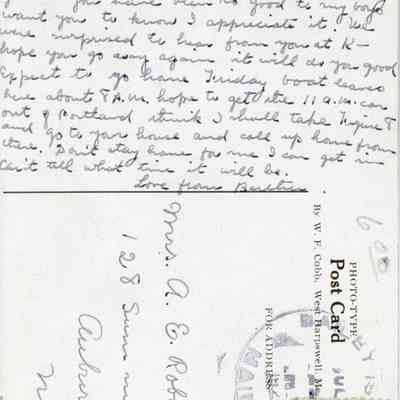 you have been so good to my boys
want you to know I appreciate it. We
were surprised to hear from you at K-
hope you go away again it will do you good
Expect to go home Tuesday boat leaves
here about 8 A.M. hope to get the 11 a.m. car
out of Portland think I shall take
and go to your house and call up home from
there. Don't stay home for me I can get in
Can't tell what time it will be.
Love from
PHOTO-TYPE
Post Card
By W. F. Cobb, West Harpswell, Me.
FOR ADDRESS
Mrs. A. E. Rob
128 Summ
Aubur
M